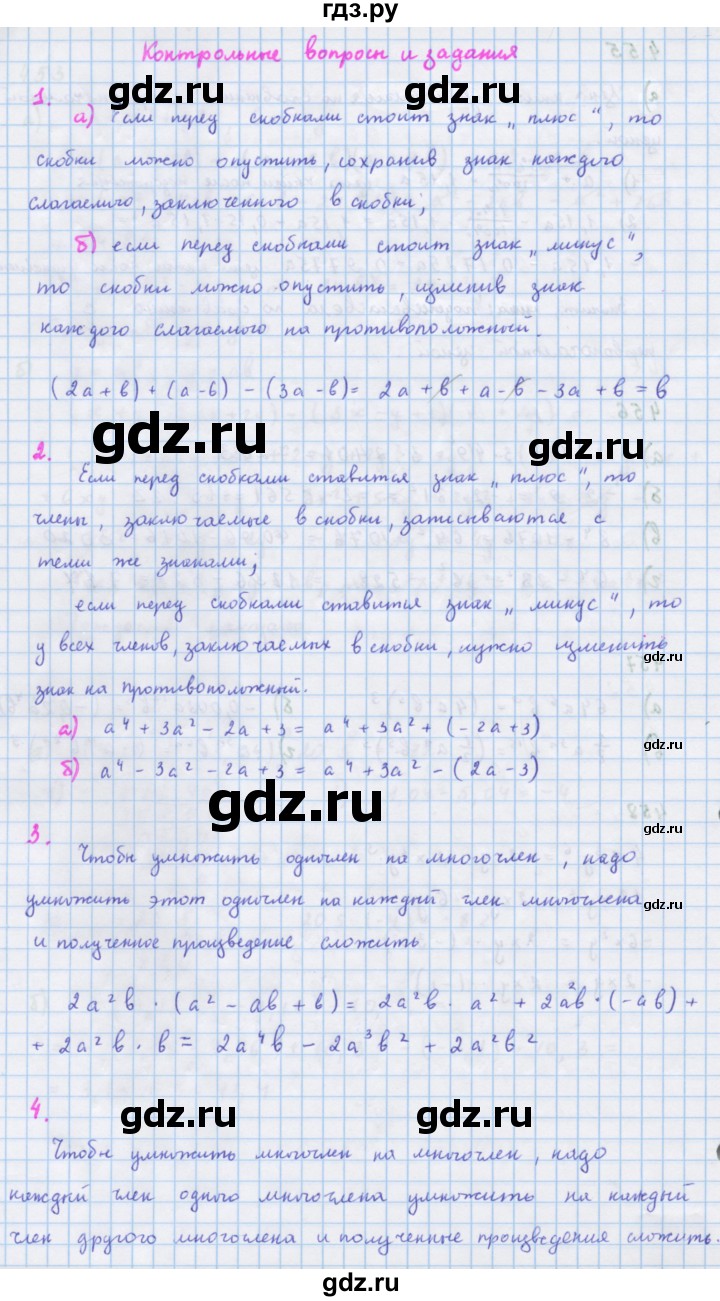 гдз.ру
Контрольные вопросы и задания
1.
а) Если перед скобками стоит знак „плюс“, то
скобки можно опустить, сохранив знак каждого
слагаемого, заключенного в скобки;
б) если перед скобками стоит знак „минус“,
то скобки можно опустить, изменив знак
каждого слагаемого на противоположный.
(2a + b) + (a - b) - (3a - b) = 2a + b + a - b - 3a + b = b
2.
Если перед скобками ставится знак „плюс“, то
члены, заключаемые в скобки, записываются с
теми же знаками;
если перед скобками ставится знак „минус“, то
у всех членов, заключаемых в скобки, нужно изменить
знак на противоположный.
а) a⁴ + 3a² - 2a + 3 = a⁴ + 3a² + (-2a + 3)
б) a⁴ - 3a² - 2a + 3 = a⁴ + 3a² - (2a - 3)
3.
Чтобы умножить одночлен на многочлен, надо
умножить этот одночлен на каждый член многочлена
и полученное произведение сложить
2a²b · (a² - ab + b) = 2a²b · a² + 2a²b · (-ab) +
+ 2a²b · b = 2a⁴b - 2a³b² + 2a²b²
4.
Чтобы умножить многочлен на многочлен, надо
каждый член одного многочлена умножить на каждый
член другого многочлена и полученные произведения сложить.
gdz.ru
gdz.ru
gdz.ru
gdz.ru
gdz.ru
gdz.ru
gdz.ru
gdz.ru
gdz.ru
gdz.ru
gdz.ru
gdz.ru
gdz.ru